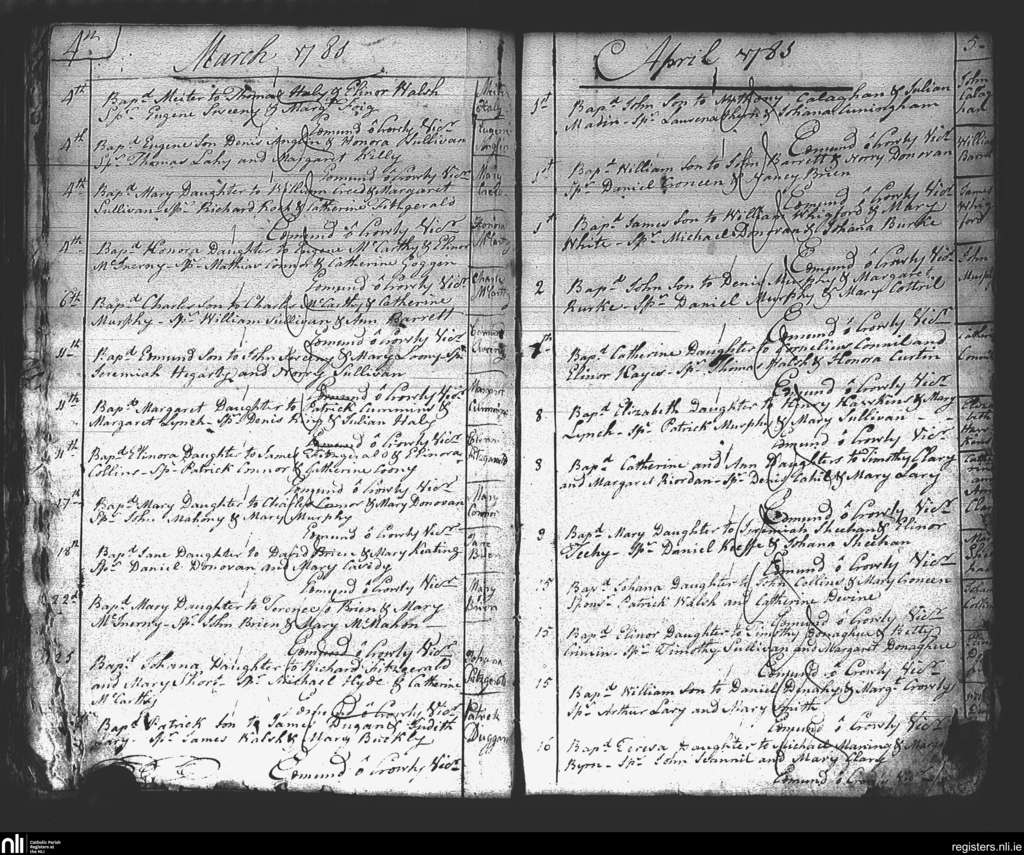 4th
March 1788
4th Bapd Meiter to Thomas Haly & Elinor Walsh
Sps Eugene Sweeny & Mary Foig
Edmund ô Crowly Vicr
4th Bapd Eugene Son Denis Anglin & Honora Sullivan
Sps Thomas Lahy and Margaret Killy
Edmund ô Crowly Vicr
Mary
4th Bapd Mary Daughter to William Creed & Margaret
Sullivan - Sps Richard Kock & Catherine Fitzgerald
Edmund ô Crowly Vicr
Honora
McCarthy
4th Bapd Honora Daughter to Eugene McCarthy & Elinor
McInerny - Sps Mathias & Catherine Goggin
Edmund ô Crowly Vicr
Charles
McCarthy
6th Bapd Charles Son to Charles McCarthy & Catherine
Murphy - Sps William Sullivan & Ann Barrett
Edmund ô Crowly Vicr
11th Bapd Edmund Son to John Sweeny & Mary Toomy - Sps
Jeremiah Hegarty and Norry Sullivan
Edmund ô Crowly Vicr
Margaret
Cummins
11th Bapd Margaret Daughter to Patrick Cummins &
Margaret Lynch - Sps Denis King & Julian Haly
Edmund ô Crowly Vicr
Fitzgerald
11th Bapd Elinora Daughter to James Fitzgerald & Elinora
Collins - Sps Patrick Connor & Catherine Coony
Edmund ô Crowly Vicr
Mary
Connor
17th Bapd Mary Daughter to Charles Connor & Mary Donovan
Sps John Mahony & Mary Murphy
Edmund ô Crowly Vicr
Jane
18th Bapd Jane Daughter to David Brien & Mary Keating
Sps Daniel Donovan and Mary Casidy
Edmund ô Crowly Vicr
Mary
Brien
22d Bapd Mary Daughter to Terence ô Brien & Mary
McInerny - Sps John Brien & Mary McMahon
Edmund ô Crowly Vicr
Johana
Fitzgerald
25 Bapd Johana Daughter to Richard Fitzgerald
and Mary Short Sps Michael Hyde & Catherine
McCarthy
Edmd ô Crowly Vicr
Patrick
Duggan
Bapd Patrick Son to James Dugan & Judith
Lary - Sps James Walsh & Mary Buckly
Edmund ô Crowly Vicr
April 1788
5
1st Bapd John Son to Anthony Calaghan & Julian
Madin - Sps Laurence & Johana Cuningham
Edmund ô Crowly Vicr
William
Barrett
1st Bapd William Son to John Barrett & Norry Donovan
Sps Daniel Coneen & Nancy Brien
Edmund ô Crowly Vicr
James
1 Bapd James Son to William Whigford & Mary
White - Sps Michael Donovan & Johana Burke
Edmund ô Crowly Vicr
John
Murphy
2 Bapd John Son to Denis Murphy & Margaret
Burke - Sps Daniel Murphy & Mary Cottril
Edmund ô Crowly Vicr
Bapd Catherine Daughter to Cornelius Connil and
Elinor Hayes - Sps Thomas Walsh & Honora Curtin
Edmund ô Crowly Vicr
8 Bapd Elizabeth Daughter to Henry Hawkins & Mary
Lynch - Sps Patrick Murphy & Mary Sullivan
Edmund ô Crowly Vicr
8 Bapd Catherine and Ann Daughters to Timothy Clary
and Margaret Riordan - Sps Denis Cahil & Mary Lary
Edmund ô Crowly Vicr
9 Bapd Mary Daughter to Jeremiah Sheehan & Elinor
Teehy - Sps Daniel Keeffe & Johana Sheehan
Edmund ô Crowly Vicr
15 Bapd Johana Daughter to John Collins & Mary Coneen
Spons Patrick Walsh and Catherine Devine
Edmund ô Crowly Vicr
15 Bapd Elinor Daughter to Timothy Donaghue & Betty
Sps Timothy Sullivan and Margaret Donaghue
Edmund ô Crowly Vicr
15 Bapd William Son to Daniel Denahy & Margt Crowly
Sps Arthur Lary and Mary Smith
Edmund ô Crowly Vicr
16 Bapd Teresa Daughter to Michael Maning &
Byrn - Sps John and Mary Clary
Edmund ô Crowly Vicr
nli
Catholic Parish
Registers at
the NLI
registers.nli.ie